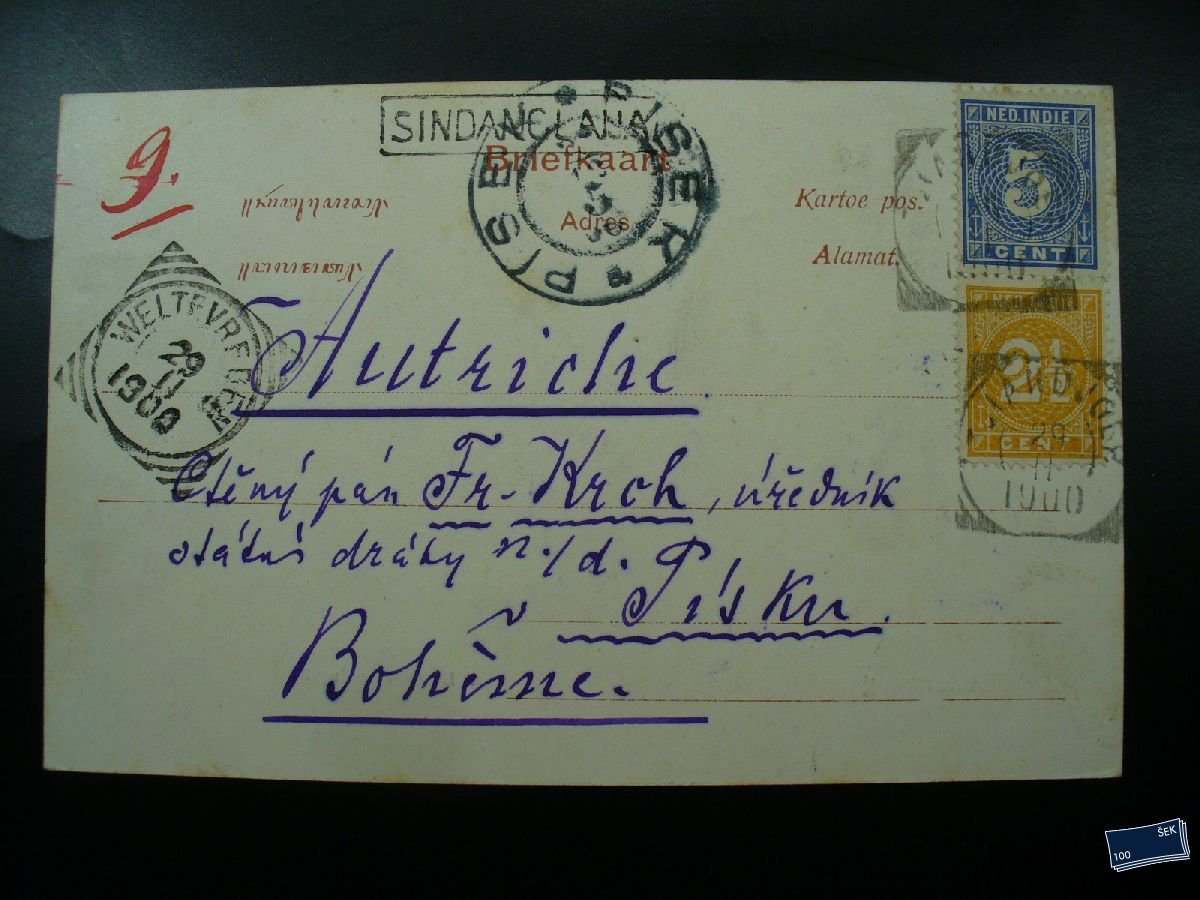 SINDANGLAIJA.
PISEK * PISEK *
5
Briefkaart
Adres
Kartoe pos.
Alamat.
9.
NED. INDIE
5
CENT
2½
CENT
1900
29
11
1900
WELTEVREDEN
29
11
1900
Autriche.
Ctěný pán Fr. Krch, úředník
státní dráhy n./d. Písku.
v
Bohême.
100 ŠEK